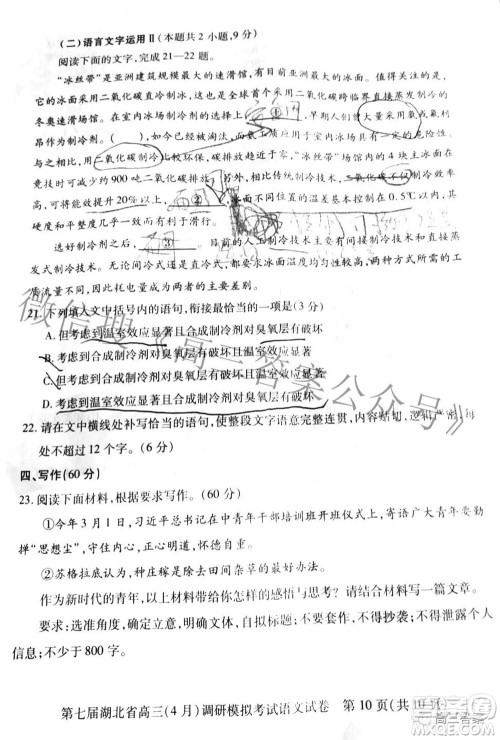 (二)语言文字运用Ⅱ(本题共2小题,9分)
阅读下面的文字,完成21—22题。
“冰丝带”是亚洲建筑规模最大的速滑馆,也有着世界上最美的冰面。值得关注的是,
它的冰面采用二氧化碳直冷制冰,这是二氧化碳跨临界直接蒸发制冷
冬奥速滑场馆。在室内冰场制冷 ① ,早期人们曾大量采用氨或氟
昂作为制冷剂。( )氨
已经被淘汰,而氨由于其在室内冰场应用具有一定的危险性,
二氧化碳制冷比较环保,碳排放趋近于零,“冰丝带”场馆内的4块主冰面在
竞技时可减少约900吨二氧化碳排放,
制冷的能效提升20%以上, ② 冰面不同位置的温差基本控制在0.5℃以内,其
硬度和平整度几乎一致而有利于滑行。
选好制冷剂后, ③ 。目前的人工制冷技术主要有两种:间接制冷技术和直接蒸
发式制冷技术。无论间冷式还是直冷式,共性都是均匀性,两种方式所需的工
质流量不同,因此耗电量大小是两者的主要差别。
21. 下列填入文中括号内的语句,衔接最恰当的一项是(3分)
A. 但考虑到温室效应显著且合成制冷剂对臭氧层有破坏
B. 考虑到合成制冷剂对臭氧层有破坏且温室效应显著
C. 考虑到温室效应显著且合成制冷剂对臭氧层有破坏
D. 但考虑到合成制冷剂对臭氧层有破坏且温室效应显著
22. 请在文中横线处补写恰当的语句,使整段文字语意完整连贯,内容贴切,逻辑严密,每
处不超过12个字。(6分)
四、写作(60分)
23. 阅读下面材料,根据要求写作。(60分)
①今年3月1日,习近平总书记在中青年干部培训班开班式上,寄语广大青年干部要勤
掸“思想尘”,守住内心,正心明道、怀德自重。
②苏格拉底认为,种上庄稼是去田间杂草的最好方法。
作为新时代的青年,以上材料带给你怎样的感悟与思考?请结合材料写一篇文章。
要求:选准角度,确定立意,明确文体,自拟标题;不要套作,不得抄袭;不得泄露个人
信息;不少于800字。
第七届湖北省高三(4月)调研模拟考试语文试卷 第10页(共10页)
微信搜《高三答案公众号》
高三答案